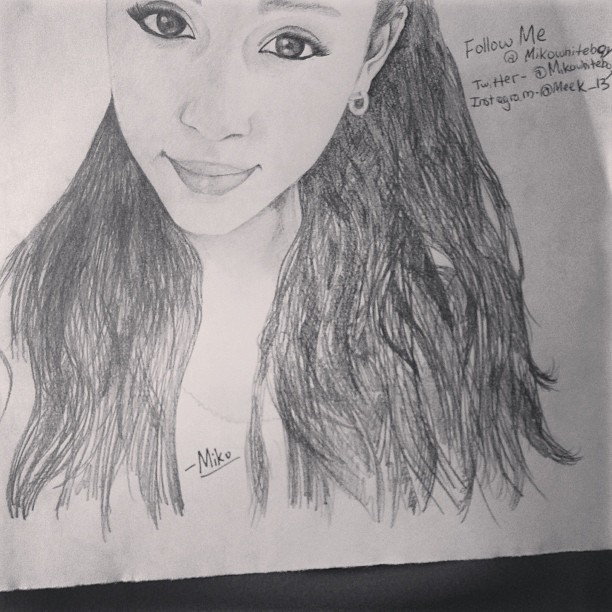 Follow Me
@Mikowhiteboy
Twitter- @Mikowhitebo
Instagram-@Meek_13
-Miko